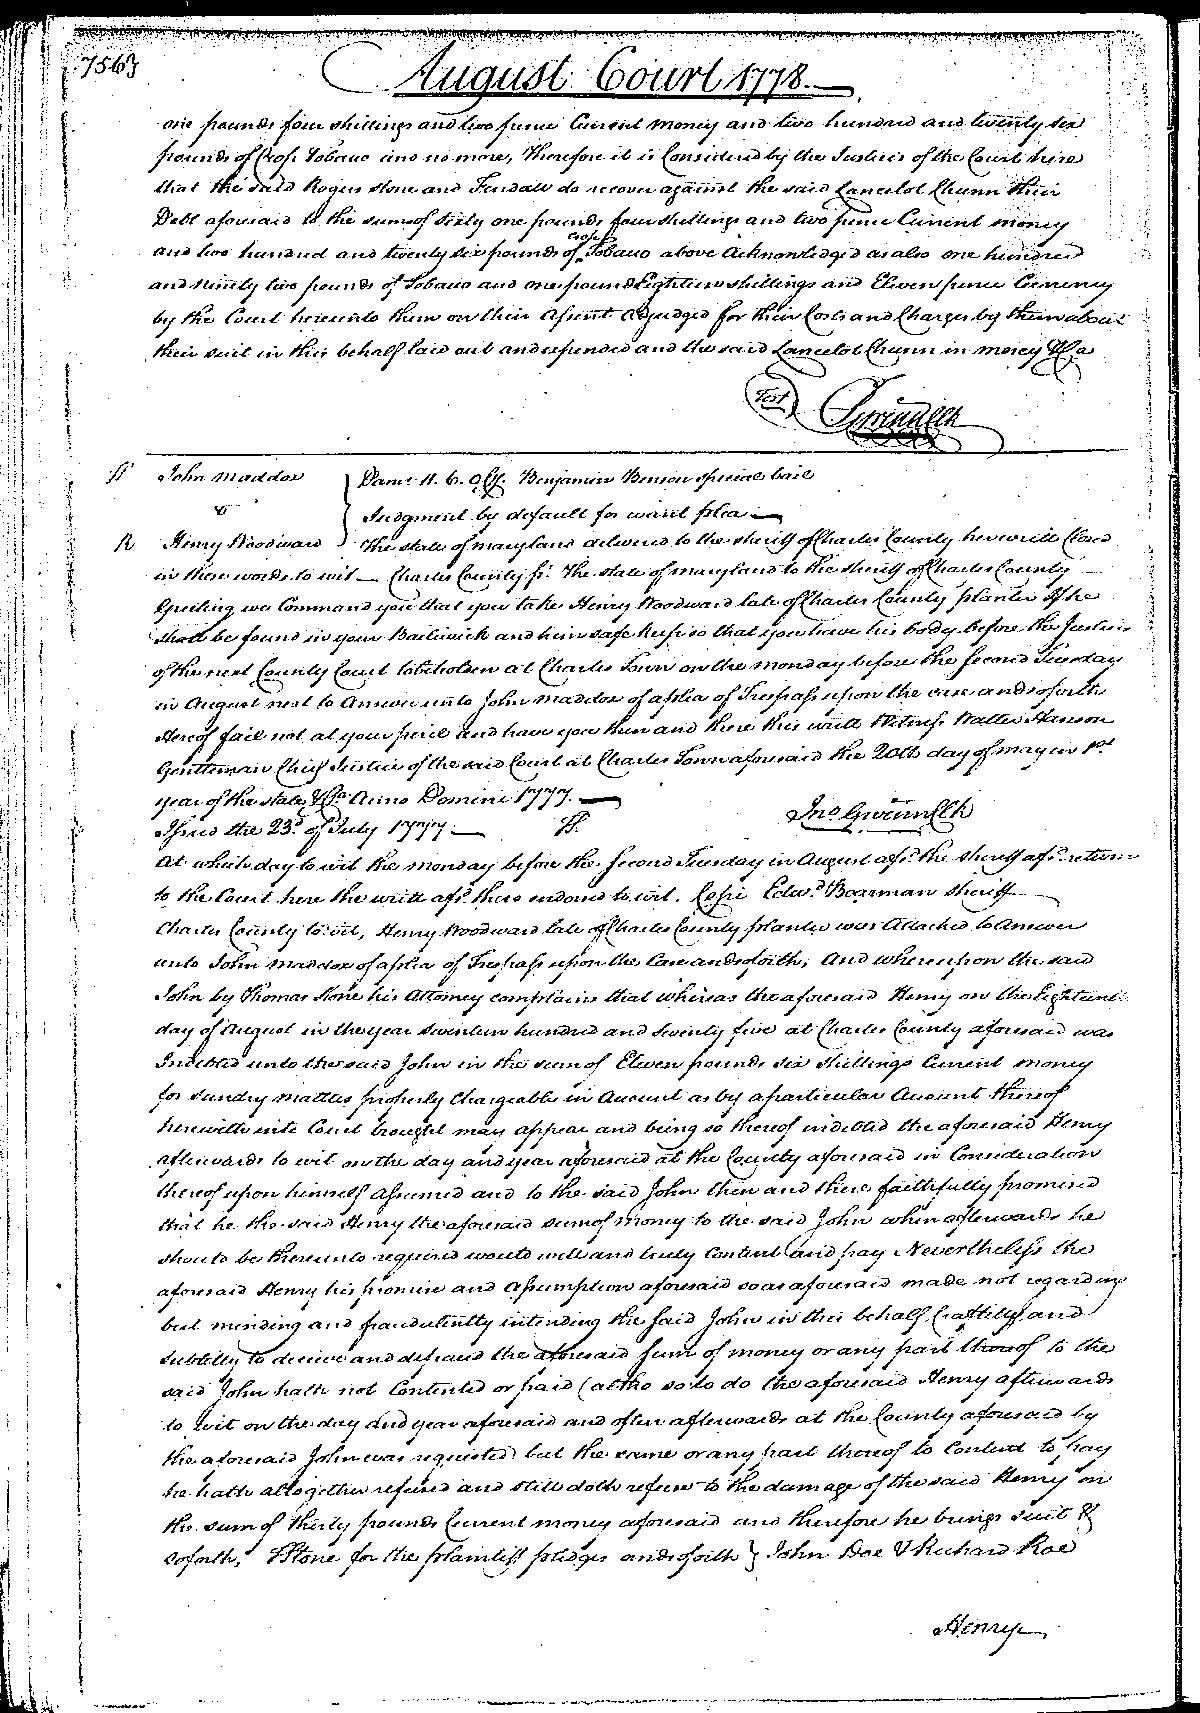 756
August Court 1778.
one pounds four shillings and two pence Current money and two hundred and twenty six
pounds of Crop Tobacco and no more, Therefore it is Considered by the Justices of the Court here
that the said Rogers Stone and Fendall do recover against the said Lancelot Chunn their
Debt aforesaid to the sum of sixty one pounds four shillings and two pence Current money
and two hundred and twenty six pounds of Crop Tobacco above acknowledged as also one hundred
and ninety two pounds of Tobacco and one pound Eighteen shillings and Eleven pence Currency
by the Court here unto them on their Assent adjudged for their Costs and Charges by them about
their suit in this behalf laid out and expended and the said Lancelot Chunn in mercy &ca
Test
John Maddox Damr 11. 6. 0 Benjamin Benson special bail
vs Judgment by default for want plea
Henry Woodward The state of maryland delivered to the sheriff of Charles County her writt Closed
in these words to wit Charles County ss. The state of maryland to the sheriff of Charles County
Greeting we Command you that you take Henry Woodward late of Charles County planter If he
shall be found in your Bailiwick and him safe keep so that you have his body before the Justices
of the next County Court to beholden at Charles Town on the monday before the second Tuesday
in August next to Answer unto John maddox of a plea of Trespass upon the case and soforth
Hereof fail not at your peril and have you then and there this writt Witness Walter Hanson
Gentleman Chief Justice of the said Court at Charles Town aforesaid the 20th day of may in 1st
year of the state &ca Anno Domini 1777.
Issued the 23d of July 1777. Jno Gwinn Clk
At which day to wit the monday before the second Tuesday in August afsd the sheriff afsd return
to the Court here the writt afsd thus endorsed to wit. Cepi Edwd Boarman sheriff
Charles County to wit, Henry Woodward late of Charles County planter was Attached to answer
unto John maddox of a plea of Trespass upon the Case and soforth, And whereupon the said
John by Thomas Stone his Attorney complains that whereas the aforesaid Henry on the Eighteenth
day of August in the year seventeen hundred and seventy five at Charles County aforesaid was
Indebted unto the said John in the sum of Eleven pounds six shillings Current money
for sundry matters properly Chargeable in Account as by a particular Account thereof
herewith into Court brought may appear and being so thereof indebted the aforesaid Henry
afterwards to wit on the day and year aforesaid at the County aforesaid in Consideration
thereof upon himself assumed and to the said John then and there faithfully promised
that he the said Henry the aforesaid sum of money to the said John when afterwards he
should be thereunto required would well and truly Content and pay Nevertheless the
aforesaid Henry his promise and Assumption aforesaid so as aforesaid made not regarding
but minding and fraudulently intending the said John in this behalf Craftily and
subtilly to deceive and defraud the aforesaid sum of money or any part thereof to the
said John hath not Contented or paid (altho so to do the aforesaid Henry afterwards
to wit on the day and year aforesaid and often afterwards at the County aforesaid by
the aforesaid John was requested) but the same or any part thereof to Content to pay
he hath altogether refused and still doth refuse to the damage of the said Henry on
the sum of thirty pounds Current money aforesaid and therefore he brings suit &
soforth, TStone for the plaintiff pledges and soforth John Doe & Richard Roe
Henry